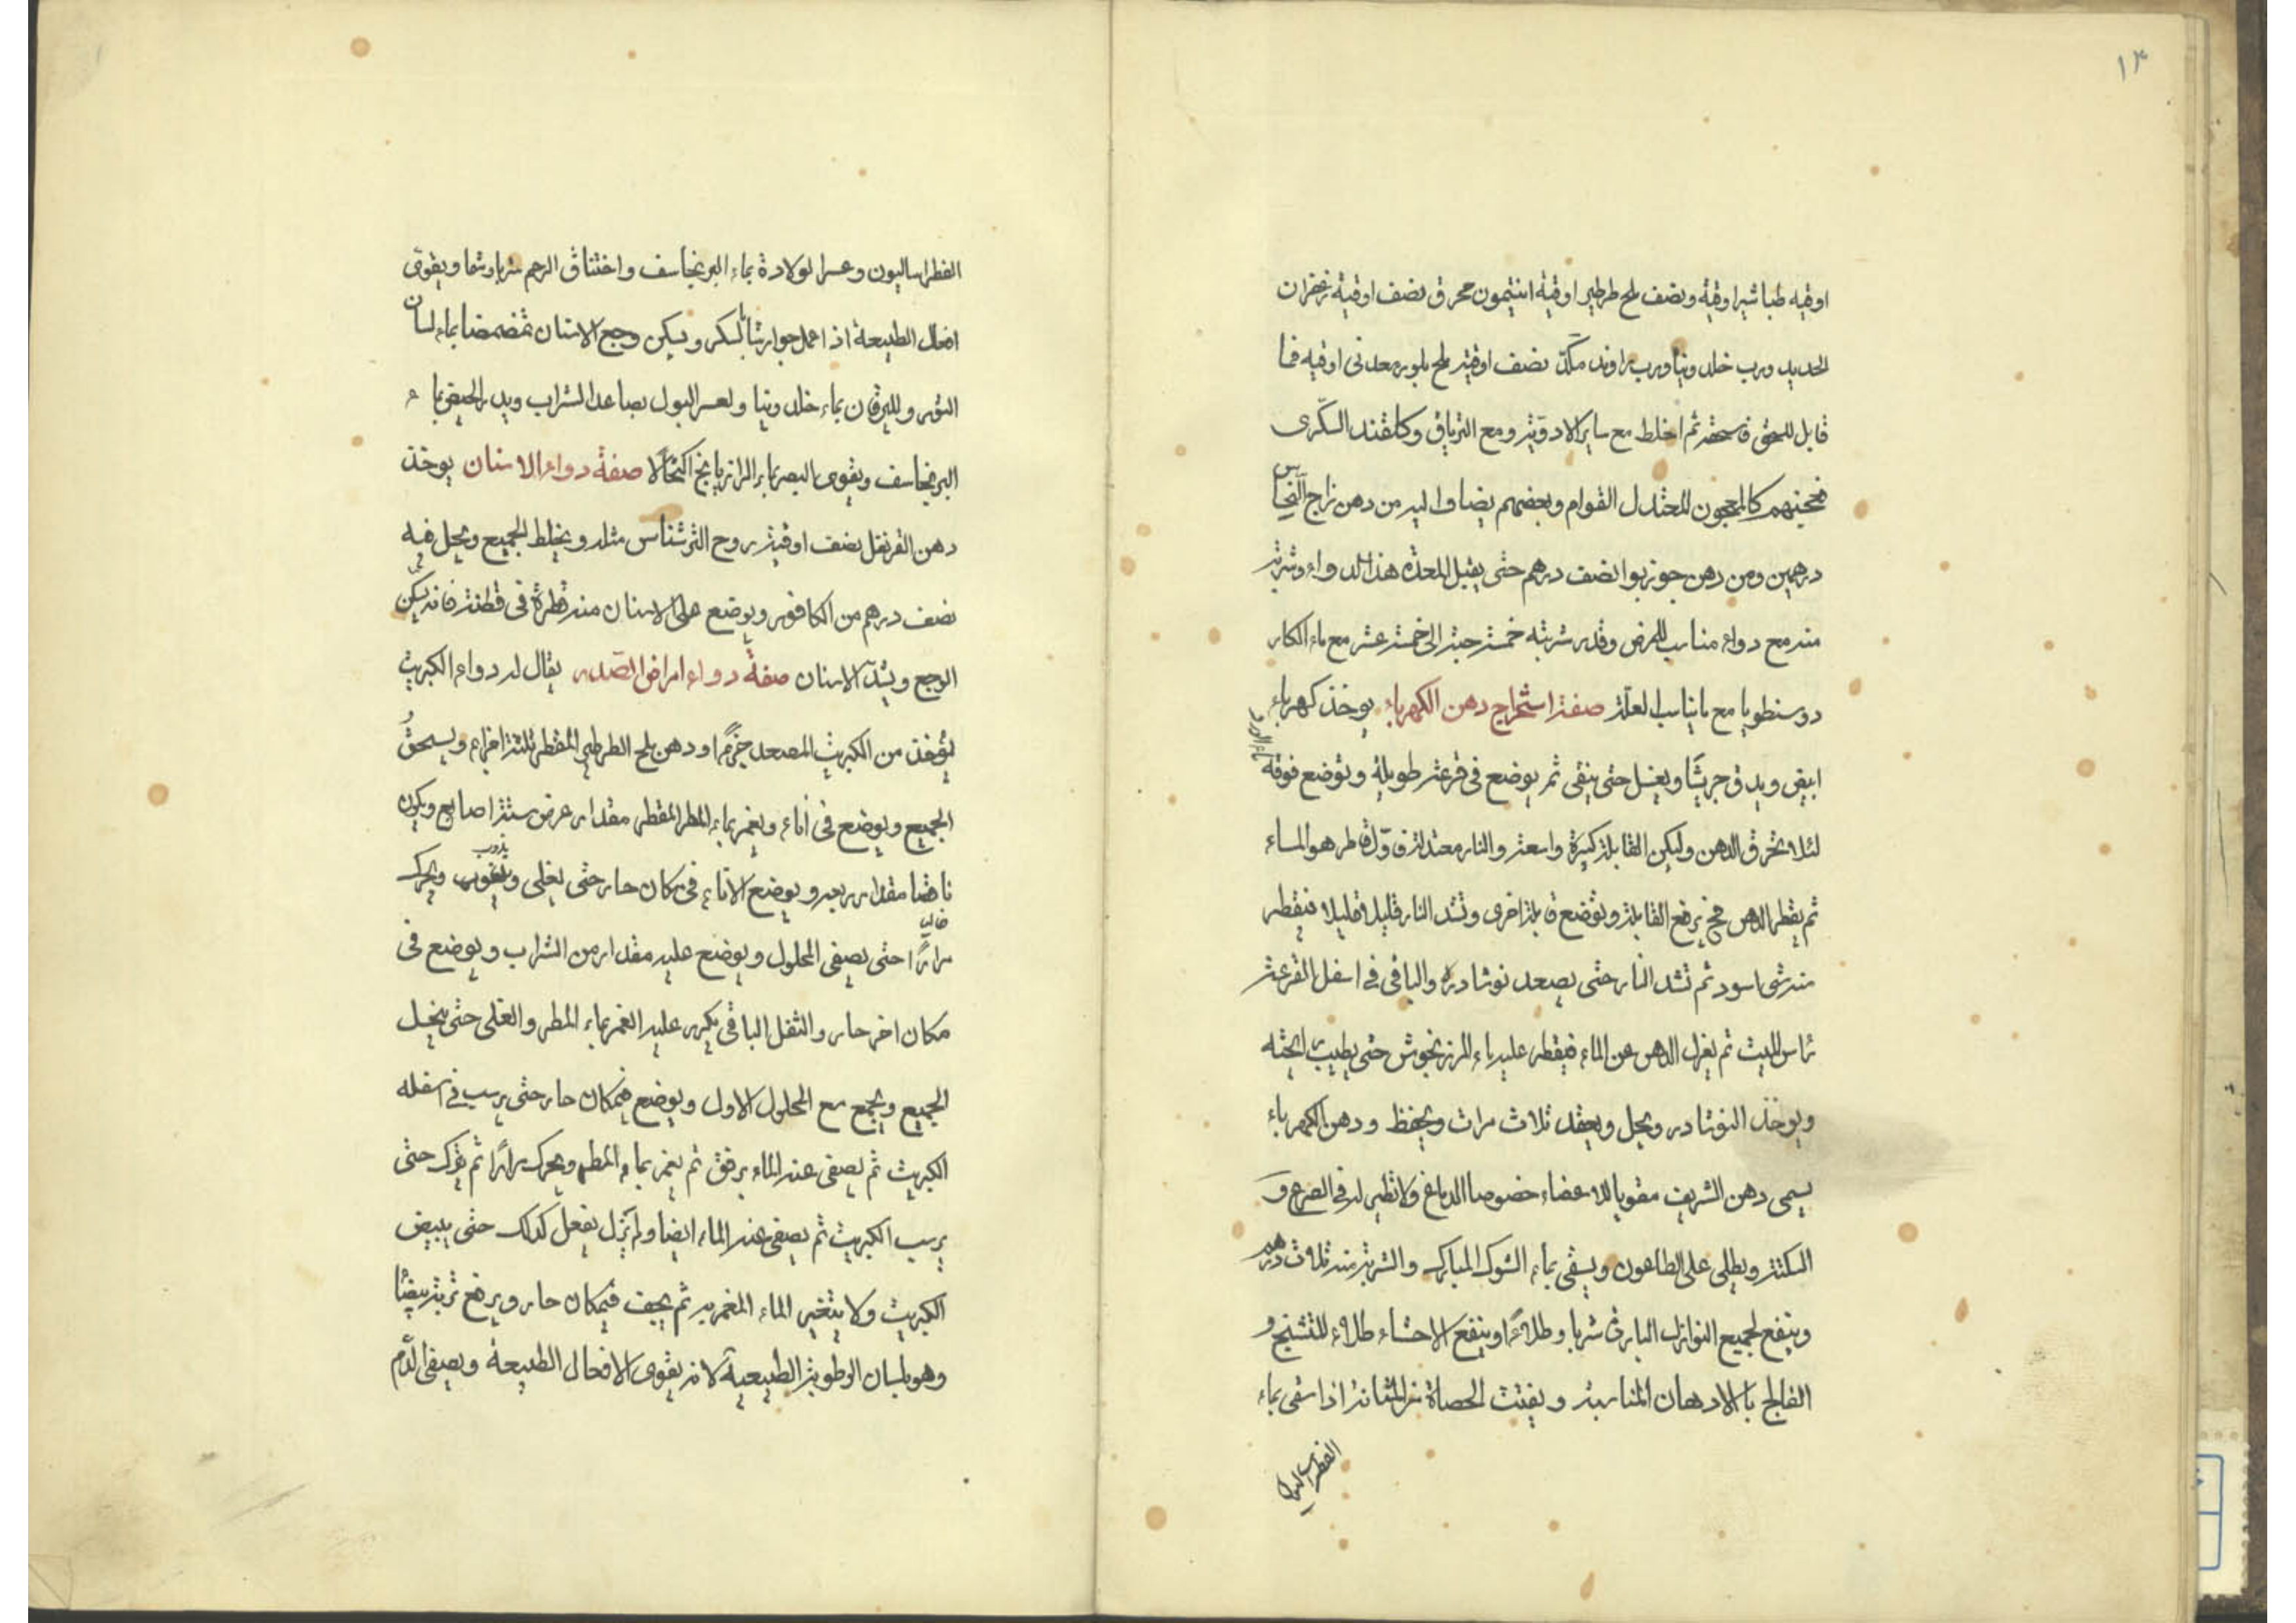 ١٣
اوقيه طباشير اوقية ونصف ملح طرطير اوقية انتيمون محرق نصف اوقية زعفران
الحديد ورب خلدونيا ورب راوند مكد نصف اوقيه ملح بلور معدنى اوقيه فما
قابل للسحق فاسحقه ثم اخلط مع ساير الادوية ومع الترياق وكلقند السكرى
فعجنهم كالمعجون المعتدل القوام وبعضهم يضاف اليه من دهن زاج النحاس
درهمين ومن دهن جوزبوا نصف درهم حتى يقبل المعدة هذا الدواء وشربة
منه مع دواء مناسب للمرض وقدر شربته خمسة حبة الى خمسة عشر مع ماء الكار
دوسنطويا مع ما يناسب العلة صفة استخراج دهن الكهرباء يوخذ كهرباء
ابيض ويدق جريشا ويغسل حتى ينقى ثم يوضع فى قرعة طويلة ويوضع فوقه
ماء الورد
لئلا تحرق الدهن وليكن القابلة كبيرة واسعة والنار معتدلة فاول قاطر هو الماء
ثم يقطر الدهن فح يرفع القابلة ويوضع قابلة اخرى وتشد النار قليلا قليلا فيقطر
منه شى اسود ثم تشد النار حتى يصعد نوشادره والباقى فى اسفل القرعة
راس الميت ثم يعزل الدهن عن الماء فيقطر عليه ماء المرزنجوش حتى يطيب رايحته
ويوخذ النوشادر ويحل ويعقد ثلاث مرات ويحفظ ودهن الكهرباء
يسمى دهن الشريف مقويا للاعضاء خصوصا الدماغ ولا نظير له فى الصرع و
السكتة ويطلى على الطاعون ويسقى بماء الشوك المبارك والشربة منه ثلاث درهم
وينفع لجميع النوازل الباردة شربا وطلاءً وينفع الاحشاء طلاء للتشنج و
الفالج بالادهان المناسبة ويفتت الحصاة من المثانة اذا سقى بماء
الفطراساليون
الفطراساليون وعسر الولادة بماء البرنجاسف واختناق الرحم شربا وشما ويقوى
افعال الطبيعة اذا عمل جوارشا بالسكر ويسكن وجع الاسنان تمضمضا بماء لسان
الثور ولليرقان بماء خلدونيا ولعسر البول بصاعد الشراب ويدر الحيض بماء
البرنجاسف ويقوى البصر بماء الرازيانج اكتحالا صفة دواء الاسنان يوخذ
دهن القرنفل نصف اوقية روح الترشناس مثله ويخلط الجميع ويحل فيه
نصف درهم من الكافور ويوضع على الاسنان منه قطرة فى قطنة فانه يسكن
الوجع ويشد الاسنان صفة دواء امراض الصدر يقال له دواء الكبريت
يؤخذ من الكبريت المصعد جزءا ودهن ملح الطرطير المقطر ثلثة اجزاء ويسحق
الجميع ويوضع فى اناء ويغمر بماء المطر المقطر مقدار عرض ستة اصابع ويكون
ناقصا مقدار ربعه ويوضع الاناء فى مكان حار حتى يغلى ويذوب ويحرك
مرارًا حتى يصفى المحلول ويوضع عليه مقدار من الشراب ويوضع فى
مكان اخر حار والثفل الباقى يكرر عليه الغمر بماء المطر والغلى حتى ينحل
الجميع ويجمع مع المحلول الاول ويوضع فى مكان حار حتى يرسب فى اسفله
الكبريت ثم يصفى عنه الماء برفق ثم يغمر بماء المطر ويحرك مرارًا ثم يترك حتى
يرسب الكبريت ثم يصفى عنه الماء ايضا ولم يزل يفعل كذلك حتى يبيض
الكبريت ولا يتغير الماء المغمر به ثم يجف فى مكان حار ويرفع تربة بيضا
وهو بلسان الرطوبة الطبيعية لانه يقوى الافعال الطبيعة ويصفى الدم